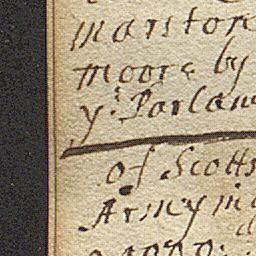 marston
moore by
yᵉ Parlam
of Scotts
Army in